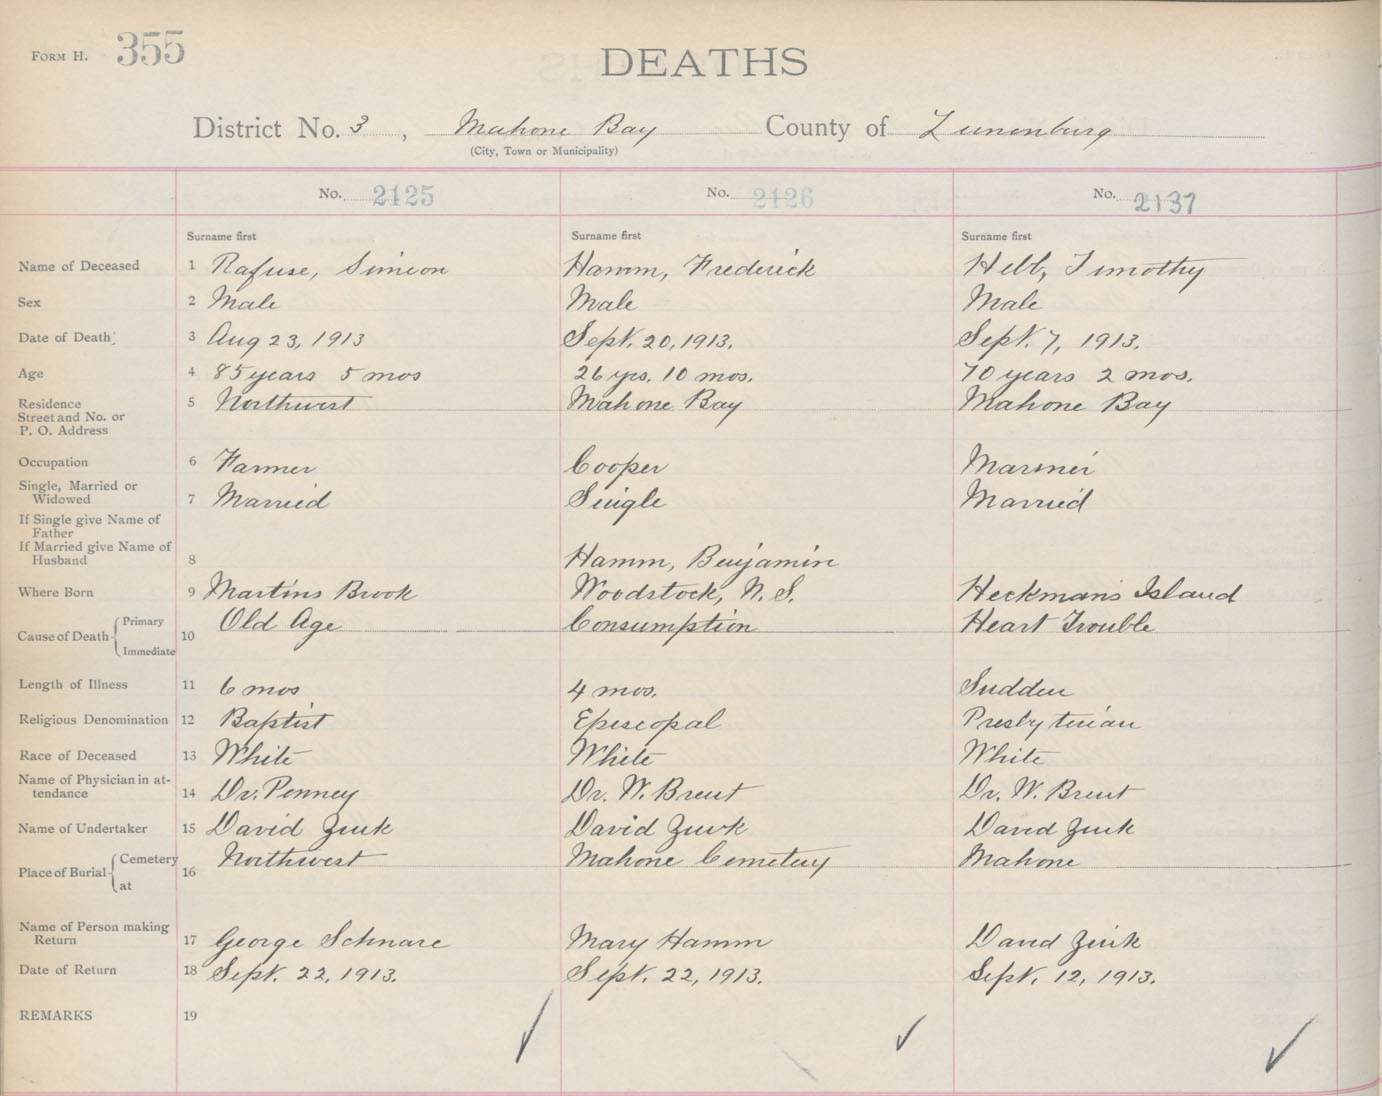 FORM H. 355
DEATHS
District No. 3, Mahone Bay County of Lunenburg
(City, Town or Municipality)
No. 2125 No. 2126 No. 2137
Surname first Surname first Surname first
Name of Deceased 1 Rafuse, Simeon Hamm, Frederick Hebb, Timothy
Sex 2 Male Male Male
Date of Death 3 Aug 23, 1913 Sept. 20, 1913. Sept. 7, 1913.
Age 4 85 years 5 mos 26 yrs. 10 mos. 70 years 2 mos.
Residence 5 Northwest Mahone Bay Mahone Bay
Street and No. or
P. O. Address
Occupation 6 Farmer Cooper Mariner
Single, Married or
Widowed 7 Married Single Married
If Single give Name of
Father
If Married give Name of
Husband 8 Hamm, Benjamin
Where Born 9 Martins Brook Woodstock, N.S. Heckmans Island
Cause of Death Primary 10 Old Age Consumption Heart Trouble
Immediate
Length of Illness 11 6 mos 4 mos. Sudden
Religious Denomination 12 Baptist Episcopal Presbyterian
Race of Deceased 13 White White White
Name of Physician in at-
tendance 14 Dr. Penney Dr. W. Brent Dr. W. Brent
Name of Undertaker 15 David Zink David Zink David Zink
Place of Burial Cemetery 16 Northwest Mahone Cemetery Mahone
at
Name of Person making
Return 17 George Schnare Mary Hamm David Zink
Date of Return 18 Sept. 22, 1913. Sept. 22, 1913. Sept. 12, 1913.
REMARKS 19